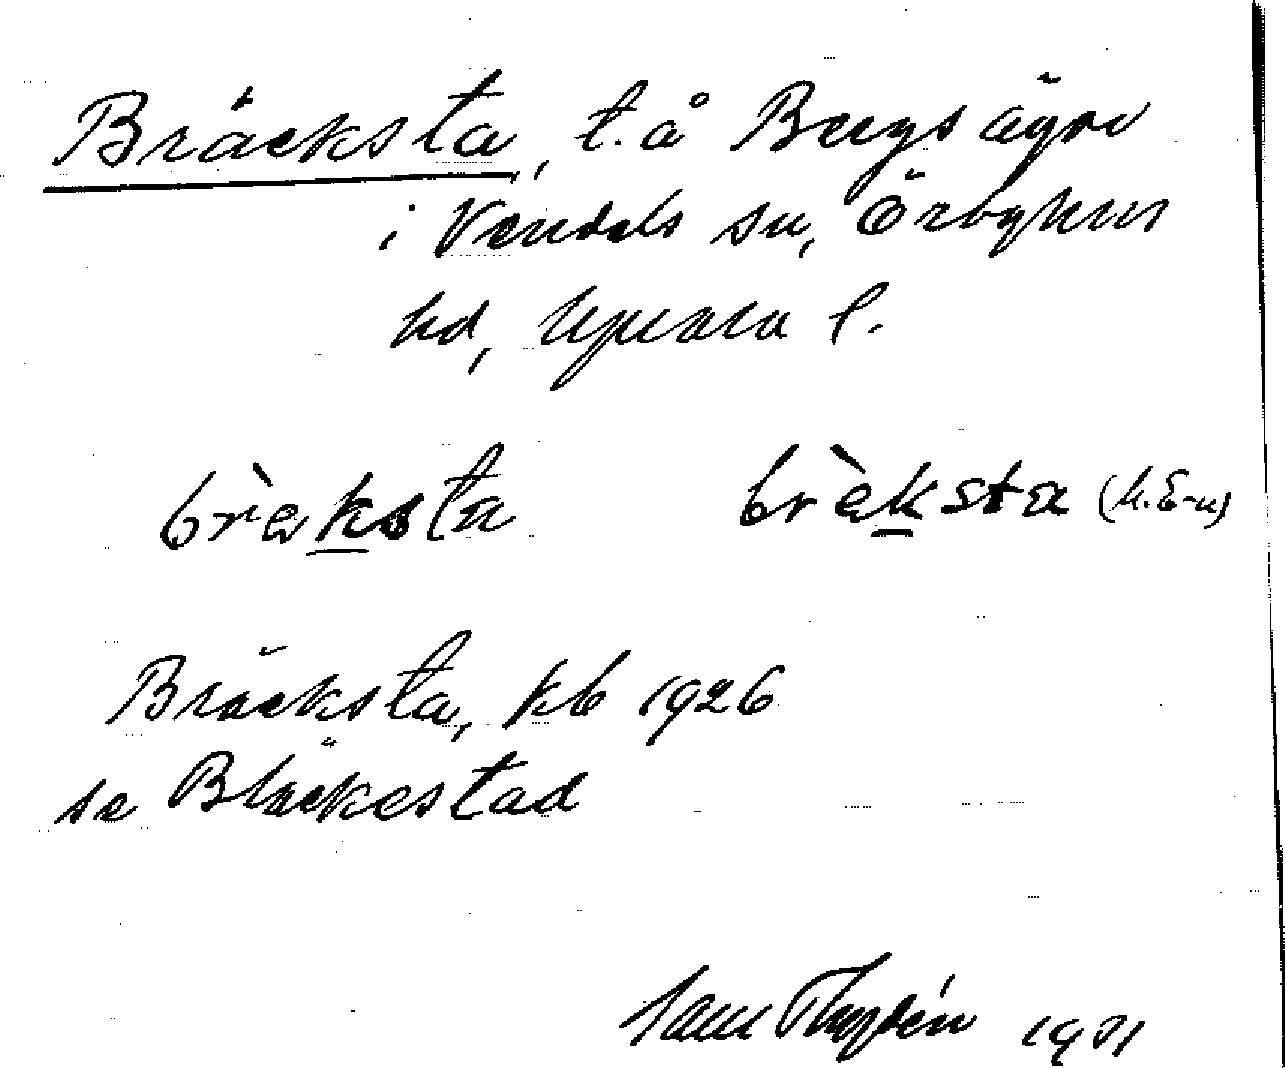 Bräcksta, t. å Bergs ägor
i Vendels sn, Örbyhus
hd, Upsala l.
brèksta brèksta (M.E-n)
Bräcksta, kb 1926
se Bläckestad
1931